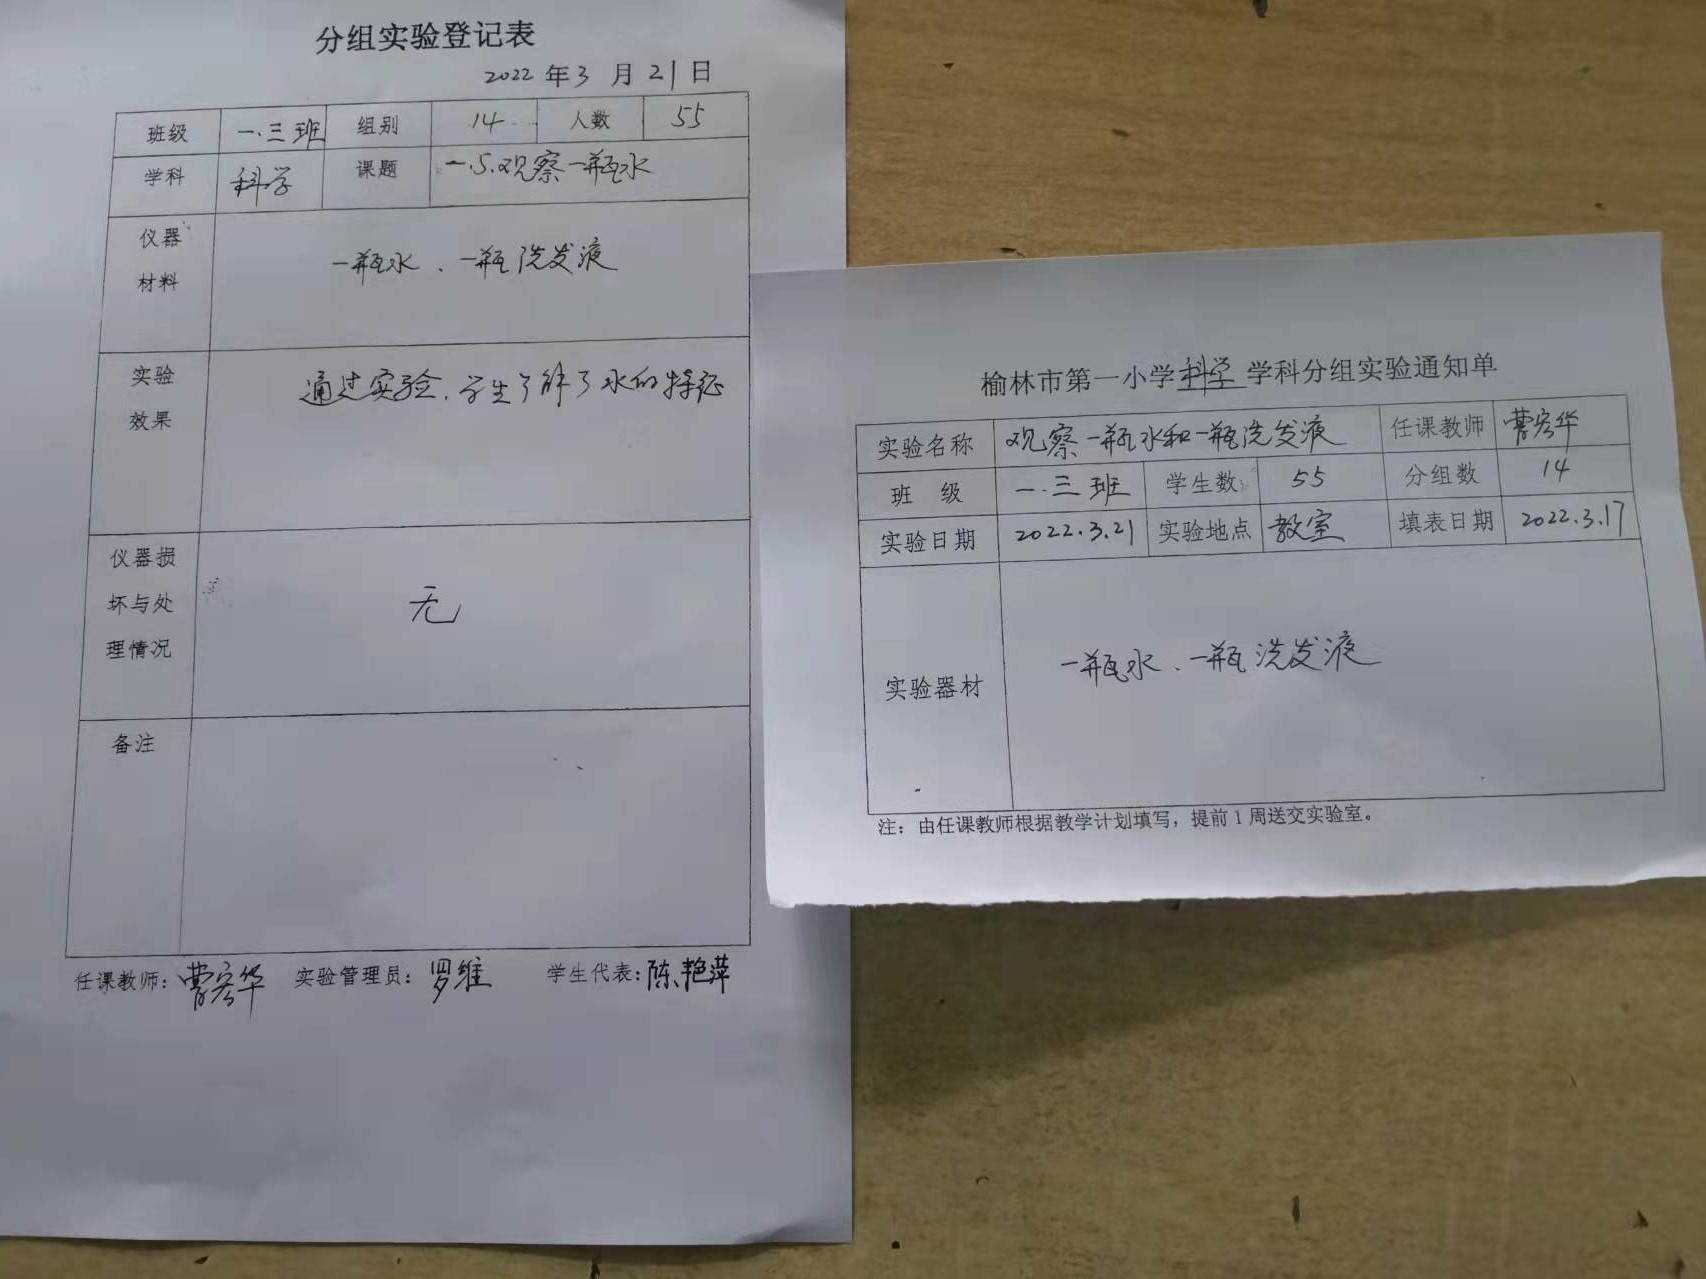 分组实验登记表
2022 年 3 月 21 日
班级 一.三班 组别 14 人数 55
学科 科学 课题 一.5.观察一瓶水
仪器
材料
一瓶水、一瓶洗发液
实验
效果
通过实验.学生了解了水的特征
仪器损
坏与处
理情况
无
备注
任课教师: 曹宏华 实验管理员: 罗维 学生代表: 陈艳萍
榆林市第一小学科学学科分组实验通知单
实验名称 观察一瓶水和一瓶洗发液 任课教师 曹宏华
班 级 一.三班 学生数 55 分组数 14
实验日期 2022.3.21 实验地点 教室 填表日期 2022.3.17
实验器材 一瓶水、一瓶洗发液
注：由任课教师根据教学计划填写，提前 1 周送交实验室。